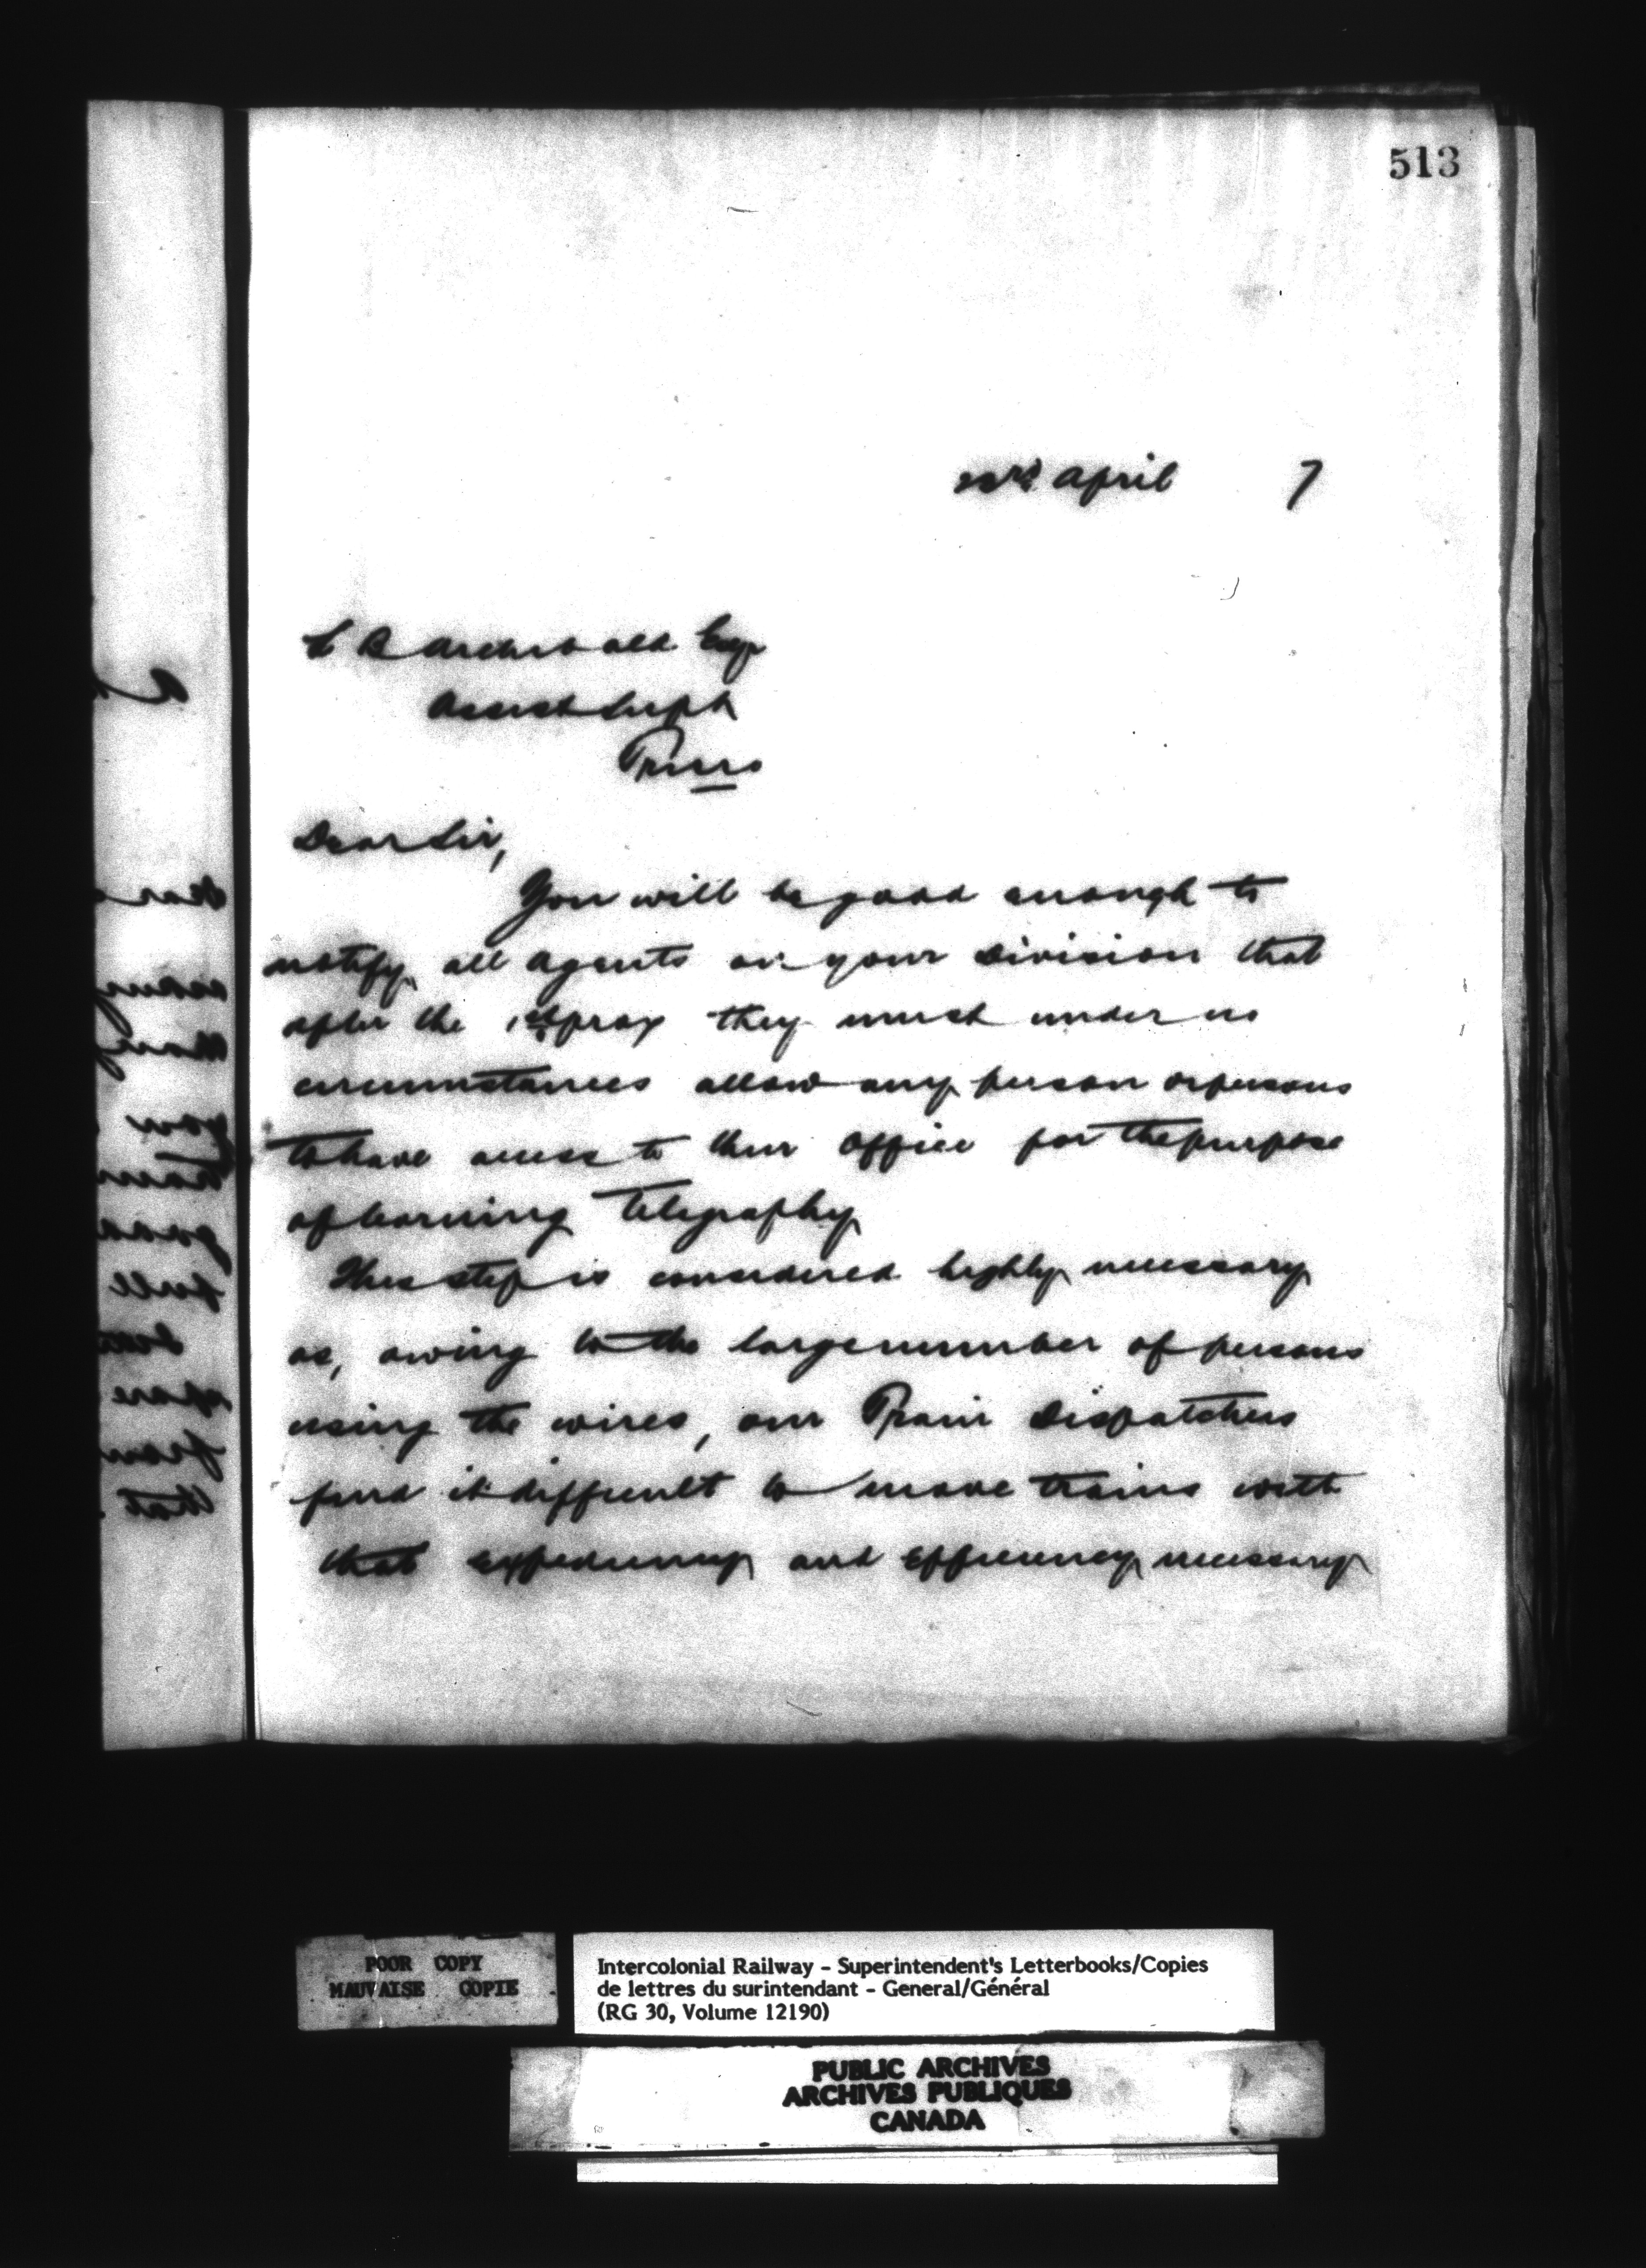 513
April 7
C B Archibald Esqr
Assist Supt
Truro
Dear Sir,
You will be good enough to
notify all agents on your Division that
after the 1st prox they must under no
circumstances allow any person or persons
to have access to their Office for the purpose
of learning Telegraphy
This step is considered highly necessary
as, owing to the large number of persons
using the wires, our Train Dispatchers
find it difficult to move trains with
that expediency and efficiency necessary
POOR COPY
MAUVAISE COPIE
Intercolonial Railway - Superintendent's Letterbooks/Copies
de lettres du surintendant - General/Général
(RG 30, Volume 12190)
PUBLIC ARCHIVES
ARCHIVES PUBLIQUES
CANADA